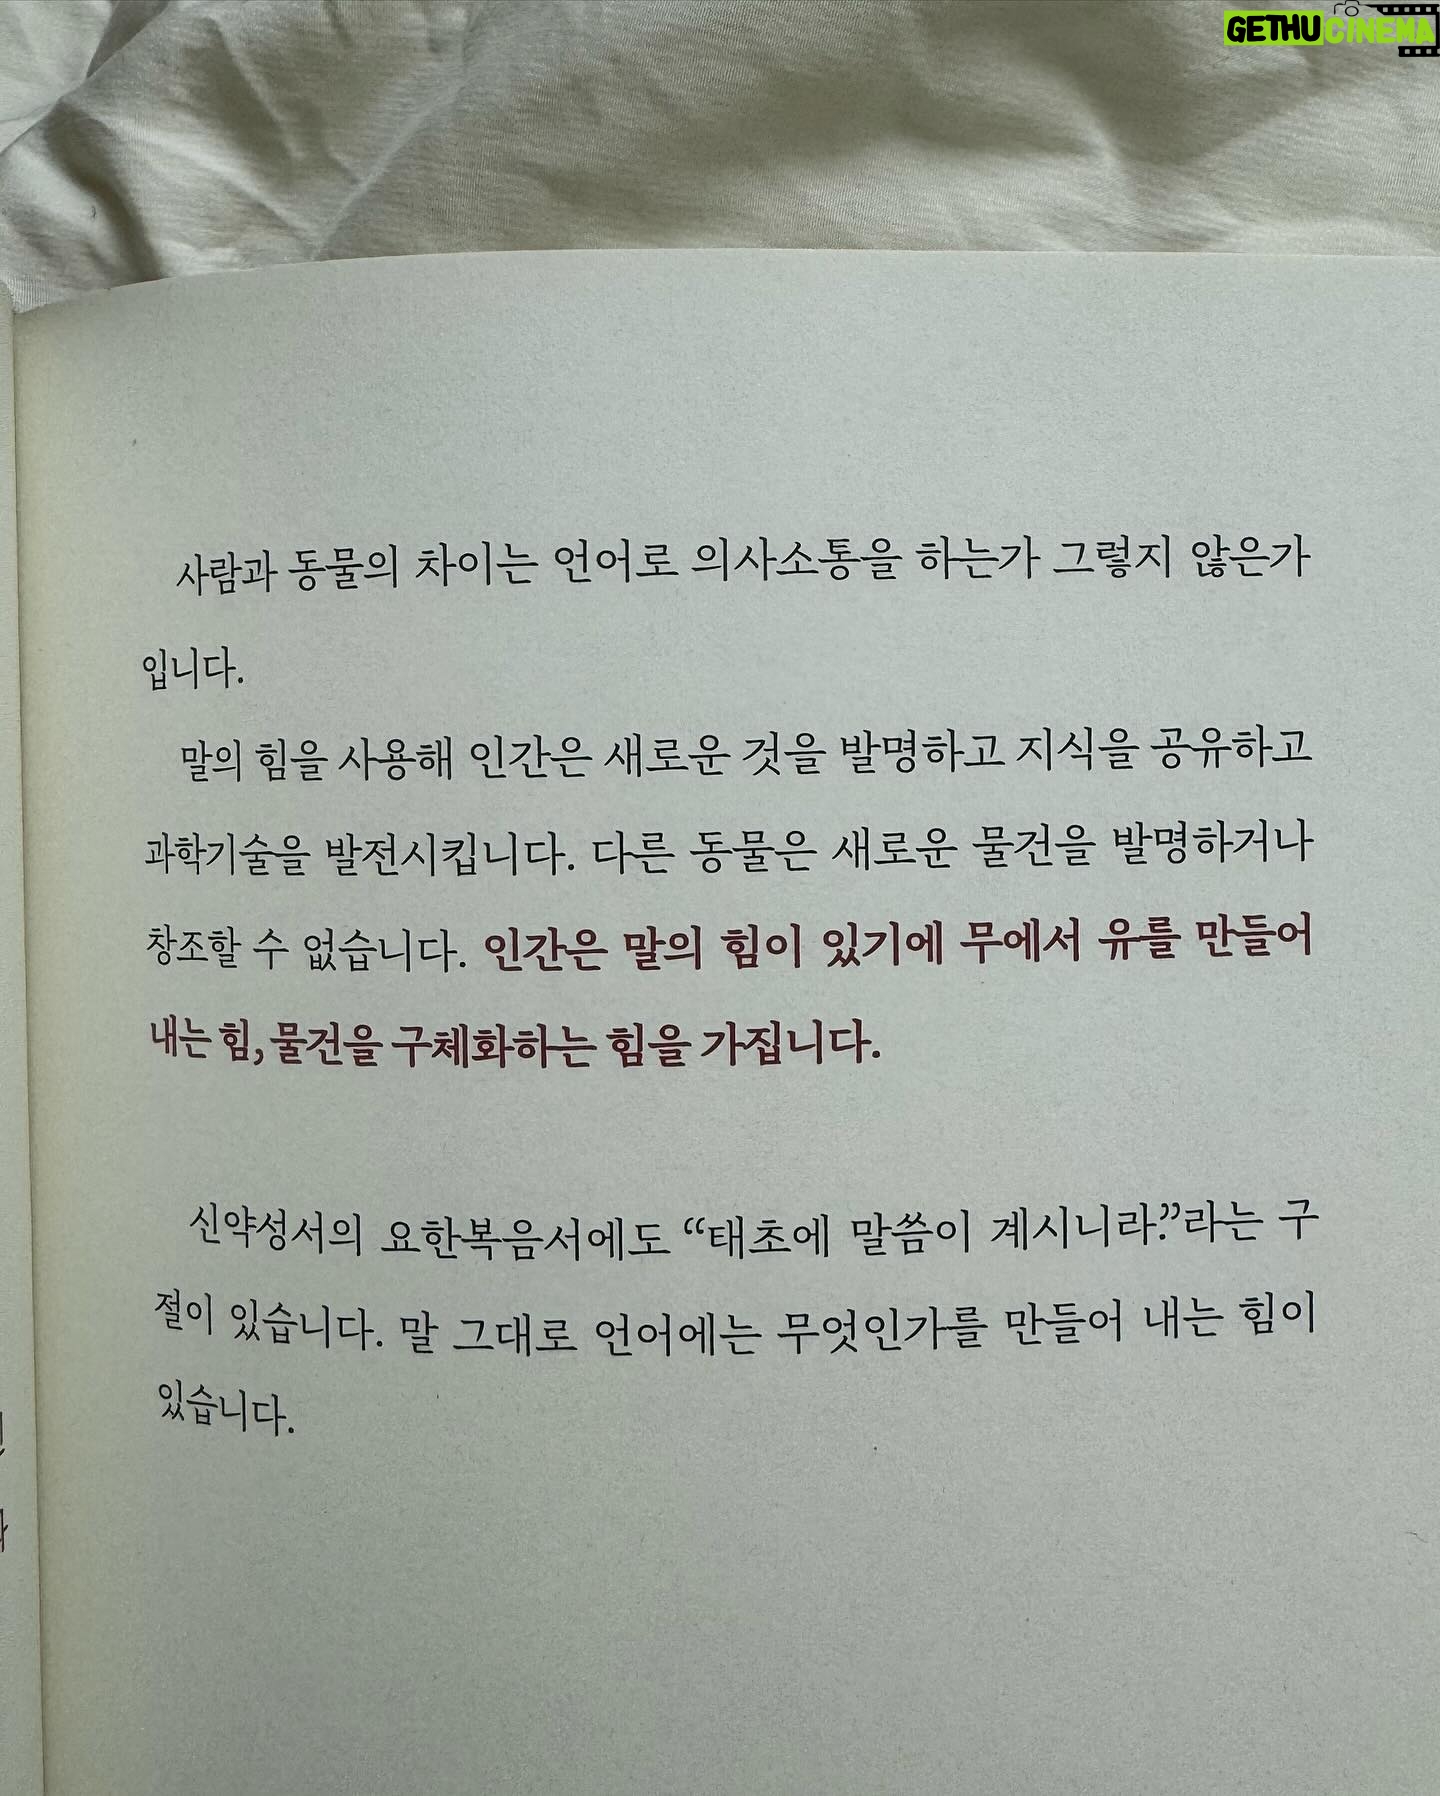 GETHUCINEMA
사람과 동물의 차이는 언어로 의사소통을 하는가 그렇지 않은가
입니다.
말의 힘을 사용해 인간은 새로운 것을 발명하고 지식을 공유하고
과학기술을 발전시킵니다. 다른 동물은 새로운 물건을 발명하거나
창조할 수 없습니다. 인간은 말의 힘이 있기에 무에서 유를 만들어
내는 힘, 물건을 구체화하는 힘을 가집니다.
신약성서의 요한복음서에도 “태초에 말씀이 계시니라.”라는 구
절이 있습니다. 말 그대로 언어에는 무엇인가를 만들어 내는 힘이
있습니다.